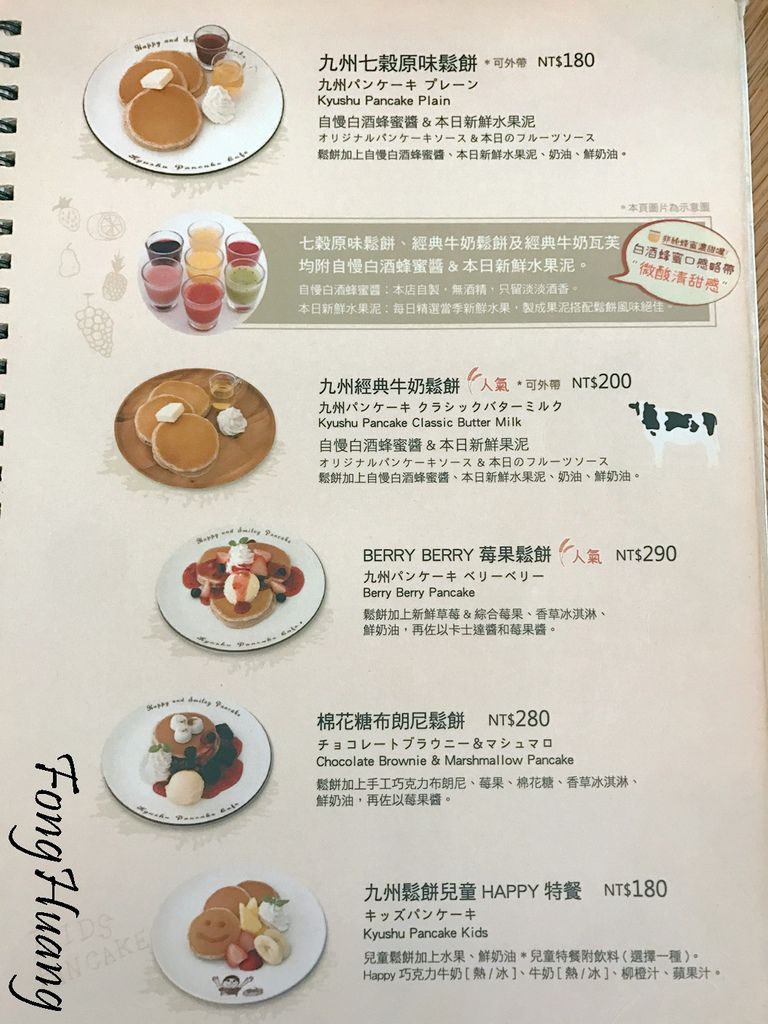 九州七穀原味鬆餅 *可外帶 NT$180
九州パンケーキ プレーン
Kyushu Pancake Plain
自慢白酒蜂蜜醬 & 本日新鮮水果泥
オリジナルパンケーキソース & 本日のフルーツソース
鬆餅加上自慢白酒蜂蜜醬、本日新鮮水果泥、奶油、鮮奶油。
Happy and Smiley Pancake
Kyushu Pancake Cafe
*本頁圖片為示意圖
七穀原味鬆餅、經典牛奶鬆餅及經典牛奶瓦芙
均附自慢白酒蜂蜜醬 & 本日新鮮水果泥。
自慢白酒蜂蜜醬:本店自製,無酒精,只留淡淡酒香。
本日新鮮水果泥:每日精選當季新鮮水果,製成果泥搭配鬆餅風味絕佳。
非純蜂蜜濃甜喔!
白酒蜂蜜口感略帶
"微酸清甜感"
九州經典牛奶鬆餅 人氣 *可外帶 NT$200
九州パンケーキ クラシックバターミルク
Kyushu Pancake Classic Butter Milk
自慢白酒蜂蜜醬 & 本日新鮮果泥
オリジナルパンケーキソース & 本日のフルーツソース
鬆餅加上自慢白酒蜂蜜醬、本日新鮮水果泥、奶油、鮮奶油。
BERRY BERRY 莓果鬆餅 人氣 NT$290
九州パンケーキ ベリーベリー
Berry Berry Pancake
鬆餅加上新鮮草莓 & 綜合莓果、香草冰淇淋、
鮮奶油,再佐以卡士達醬和莓果醬。
Happy and Smiley Pancake
Kyushu Pancake Cafe
棉花糖布朗尼鬆餅 NT$280
チョコレートブラウニー&マシュマロ
Chocolate Brownie & Marshmallow Pancake
鬆餅加上手工巧克力布朗尼、莓果、棉花糖、香草冰淇淋、
鮮奶油,再佐以莓果醬。
Happy and Smiley Pancake
Kyushu Pancake Cafe
九州鬆餅兒童 HAPPY 特餐 NT$180
キッズパンケーキ
Kyushu Pancake Kids
兒童鬆餅加上水果、鮮奶油 *兒童特餐附飲料(選擇一種)。
Happy 巧克力牛奶[熱/冰]、牛奶[熱/冰]、柳橙汁、蘋果汁。
KIDS
PANCAKE
Fong Huang